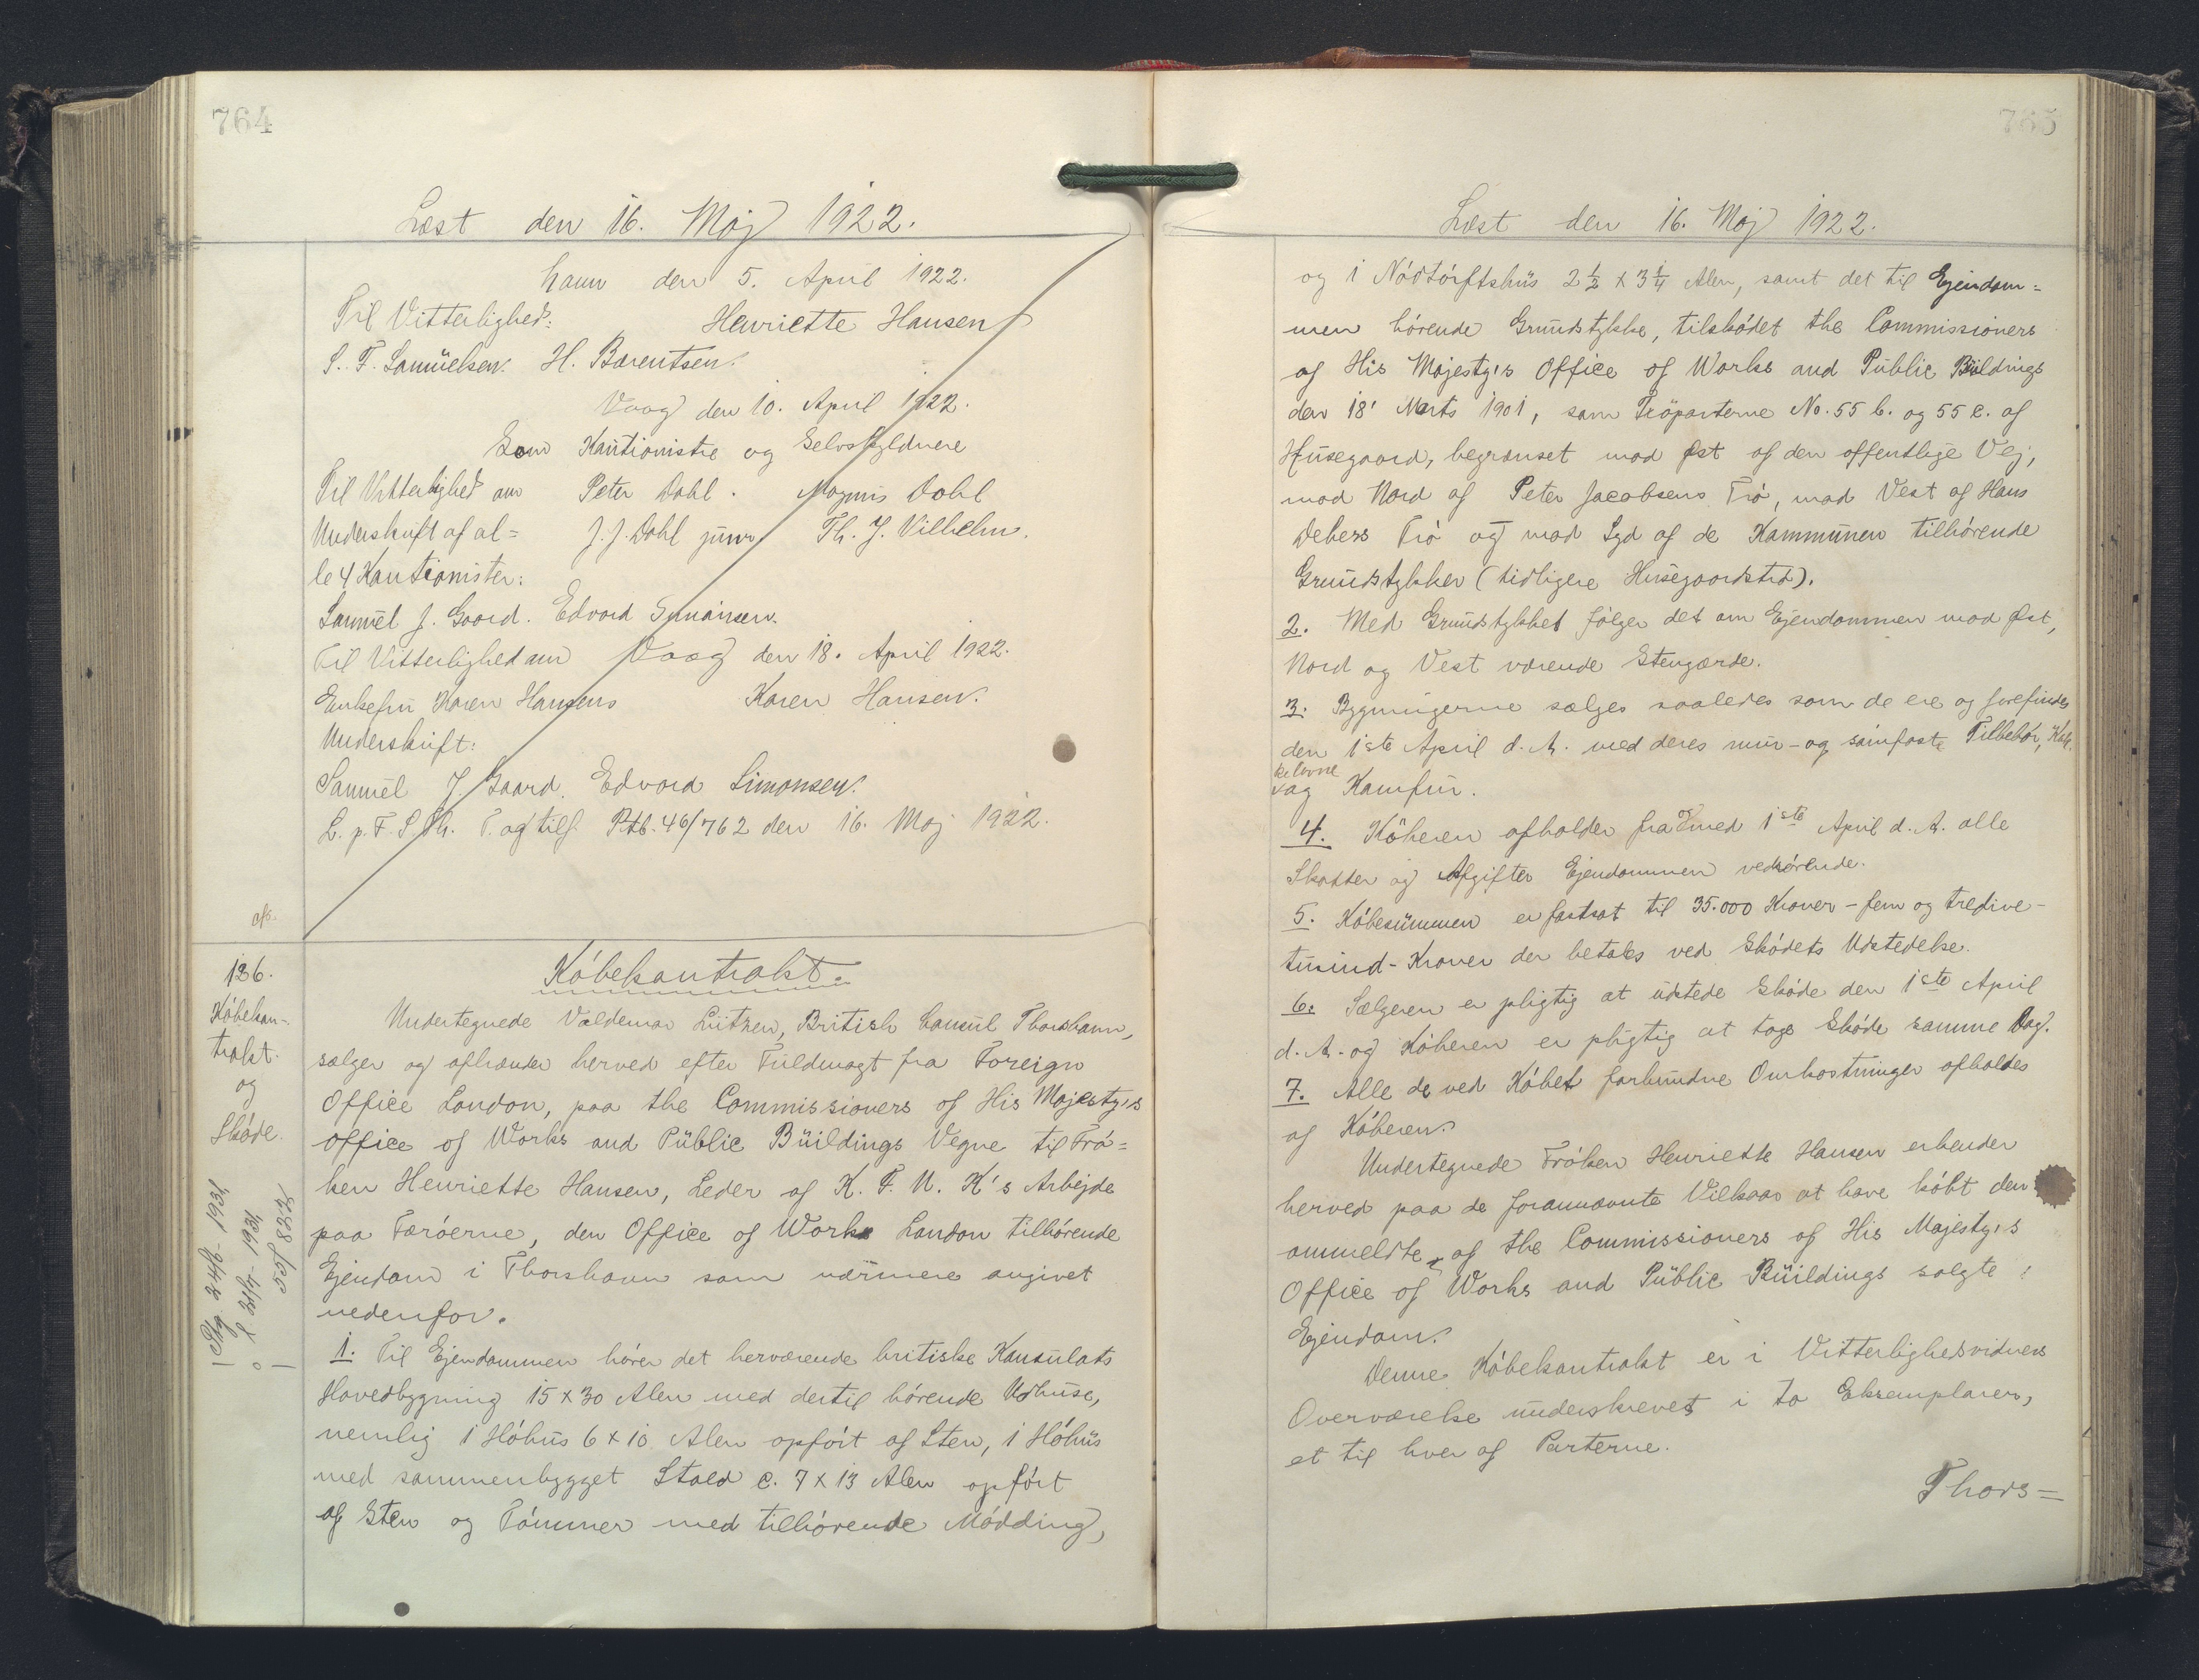 764
Læst den 16. Maj 1922.
havn den 5. April 1922.
Til Vitterlighed: Henriette Hansen
S. F. Samuelsen. H. Barentsen.
Vaag den 10. April 1922.
Som Kautionister og Selvskyldnere
Til Vitterlighed om Peter Dahl. Magnus Dahl
Underskrift af al= J. J. Dahl junr Th. J. Vilhelm.
le 4 Kautionister:
Samuel J. Gaard. Edvard Simonsen.
Til Vitterlighed om Vaag den 18. April 1922.
Enkefru Karen Hansens Karen Hansen.
Underskrift:
Samuel J Gaard. Edvard Simonsen.
L. p. F. S. Th. T. og tilf. Ptb. 46/762 den 16. Maj 1922.
afs.
126.
Købekon-
trakt
og
Skøde.
Købekontrakt.
Undertegnede Valdemar Lützen, British Consul Thorshavn,
sælger og afhænder herved efter Fuldmagt fra Foreign
Office London, paa the Commissioners of His Majesty's
Office of Works and Public Buildings Vegne til Frø=
ken Henriette Hansen, Leder af K. F. U. K's Arbejde
paa Færøerne, den Office of Works London tilhørende
Ejendom i Thorshavn som nærmere angivet
nedenfor.
1. Til Ejendommen hører det herværende britiske Konsulats
Hovedbygning 15 x 30 Alen med dertil hørende Udhuse,
nemlig 1 Høhus 6 x 10 Alen opført af Sten, 1 Høhus
med sammenbygget Stald c. 7 x 13 Alen opført
af Sten og Tømmer med tilhørende Mødding,
765
Læst den 16. Maj 1922.
og 1 Nødtørftshus 2 1/2 x 3 1/4 Alen, samt det til Ejendom=
men hørende Grundstykke, tilskødet the Commissioners
of His Majesty's Office of Works and Public Buildings
den 18' Marts 1901, som Trøparterne No. 55 b. og 55 c. af
Husegaard, begrænset mod Øst af den offentlige Vej,
mod Nord af Peter Jacobsens Trø, mod Vest af Hans
Debers Trø og mod Syd af de Kommunen tilhørende
Grundstykker (tidligere Husegaardstrø).
2. Med Grundstykket følger det om Ejendommen mod Øst,
Nord og Vest værende Stengærde.
3. Bygningerne sælges saaledes som de ere og forefindes
den 1ste April d. A. med deres mur- og sømfaste Tilbehør, Kak
kelovne
og Komfur.
4. Køberen afholder fra & med 1ste April d. A. alle
Skatter og Afgifter Ejendommen vedrørende.
5. Købesummen er fastsat til 35.000 Kroner - fem og tredive-
tusind - Kroner der betales ved Skødets Udstedelse.
6. Sælgeren er pligtig at udstede Skøde den 1ste April
d. A. og Køberen er pligtig at tage Skøde samme Dag.
7. Alle de ved Købet forbundne Omkostninger afholdes
af Køberen.
Undertegnede Frøken Henriette Hansen erkender
herved paa de forannævnte Vilkaar at have købt den
ommeldte af the Commissioners of His Majesty's
Office of Works and Public Buildings solgte
Ejendom.
Denne Købekontrakt er i Vitterlighedsvidners
Overværelse underskrevet i to Eksemplarer,
et til hver af Parterne.
Thors=